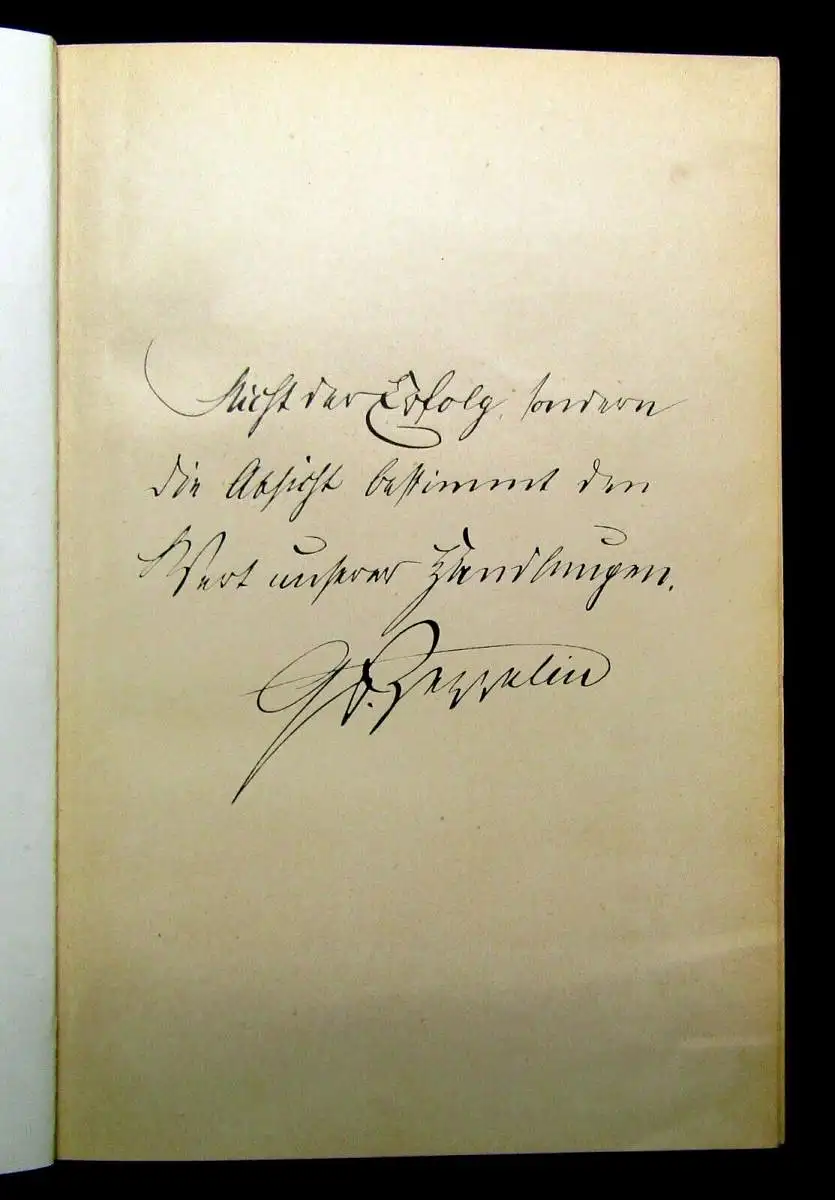 Nicht der Erfolg, sondern
die Absicht bestimmt den
Wert unserer Handlungen.
Gf. Zeppelin